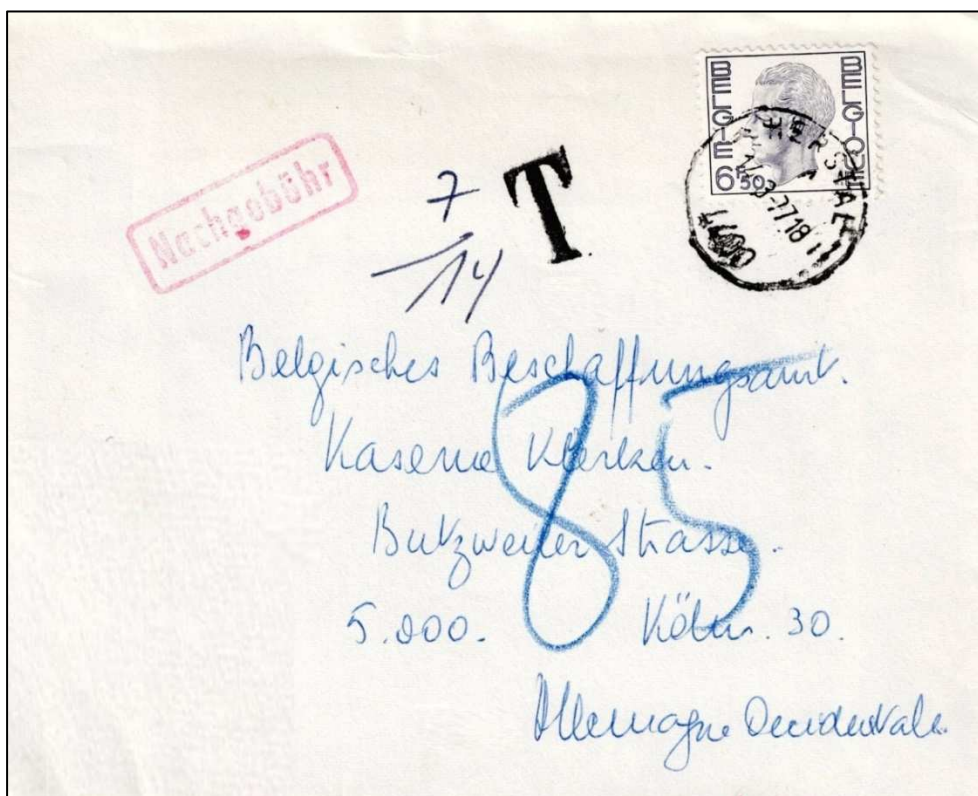 BELGIE BELGIQUE
6F50
Nachgebühr
7
T
14
Belgisches Beschaffungsamt.
Kaserne Klerken.
Butzweiler Strasse.
85
5.000. Köln. 30.
Allemagne Occidentale